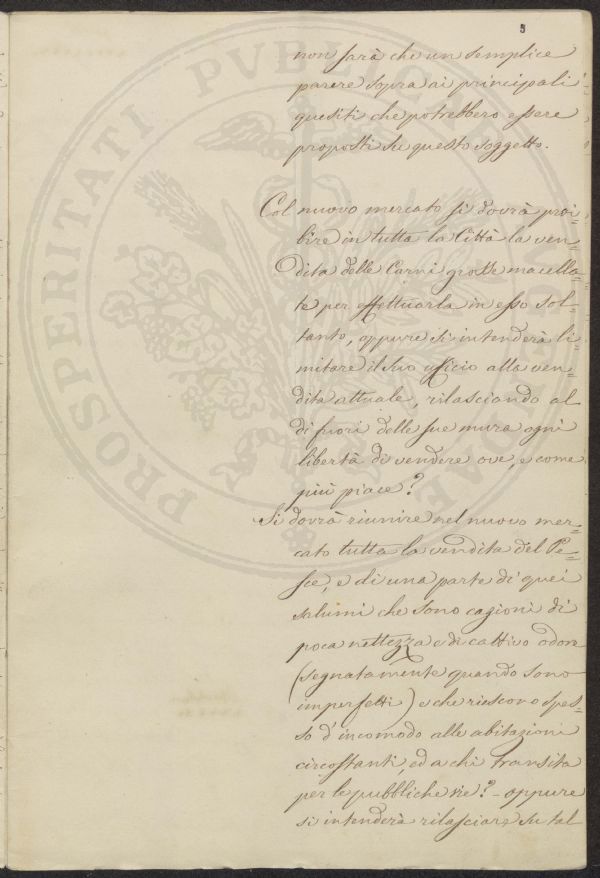 5
non sarà che un semplice
parere sopra ai principali
quesiti che potrebbero essere
proposti su questo soggetto.
Col nuovo mercato si dovrà proi=
bire in tutta la Città la ven=
dita delle Carni grosse macella=
te per effettuarla in esso sol=
tanto, oppure si intenderà li=
mitare il suo ufficio alla ven=
dita attuale, rilasciando al
di fuori delle sue mura ogni
libertà di vendere ove, e come
più piace?
Si dovrà riunire nel nuovo mer=
cato tutta la vendita del Pe=
sce, e di una parte di quei
salumi che sono cagioni di
poca nettezza e di cattivo odore
(segnatamente quando sono
imperfetti) e che riescono spes=
so d'incomodo alle abitazioni
circostanti, ed a chi transita
per le pubbliche vie? - oppure
si intenderà rilasciare su tal
PROSPERITATI PVBLICAE